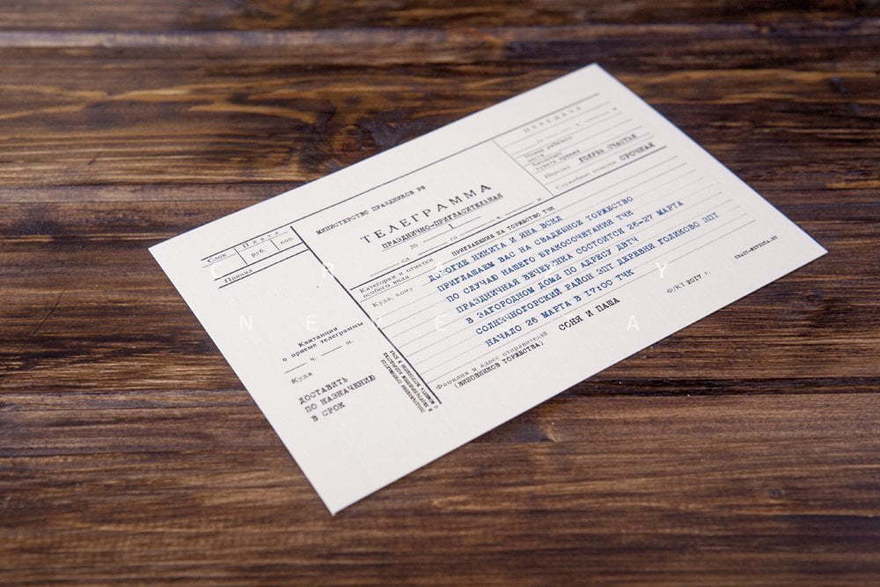 Слов Плата
руб. коп.
Принял
Квитанция
о приеме телеграммы
ч. м.
Куда
ДОСТАВИТЬ
ПО НАЗНАЧЕНИЮ
В СРОК
МИНИСТЕРСТВО ПРАЗДНИКОВ РФ
ТЕЛЕГРАММА
ПРАЗДНИЧНО-ПРИГЛАСИТЕЛЬНАЯ
ПЕРЕДАЧА
СРОЧНАЯ
Служебные
Категория и отметки
особого вида
ПРИГЛАШЕНИЕ НА ТОРЖЕСТВО ТЧК
Куда, кому
ДОРОГИЕ НИКИТА И ЯНА ВСКЛ
ПРИГЛАШАЕМ ВАС НА СВАДЕБНОЕ ТОРЖЕСТВО
ПО СЛУЧАЮ НАШЕГО БРАКОСОЧЕТАНИЯ ТЧК
ПРАЗДНИЧНАЯ ВЕЧЕРИНКА СОСТОИТСЯ 26-27 МАРТА
В ЗАГОРОДНОМ ДОМЕ ПО АДРЕСУ ДВТЧ
СОЛНЕЧНОГОРСКИЙ РАЙОН ЗПТ ДЕРЕВНЯ ГОЛИКОВО ЗПТ
НАЧАЛО 26 МАРТА В 17:00 ТЧК
Фамилия и адрес отправителя
(ВИНОВНИКОВ ТОРЖЕСТВА)
СОНЯ И ПАША
2017 г.